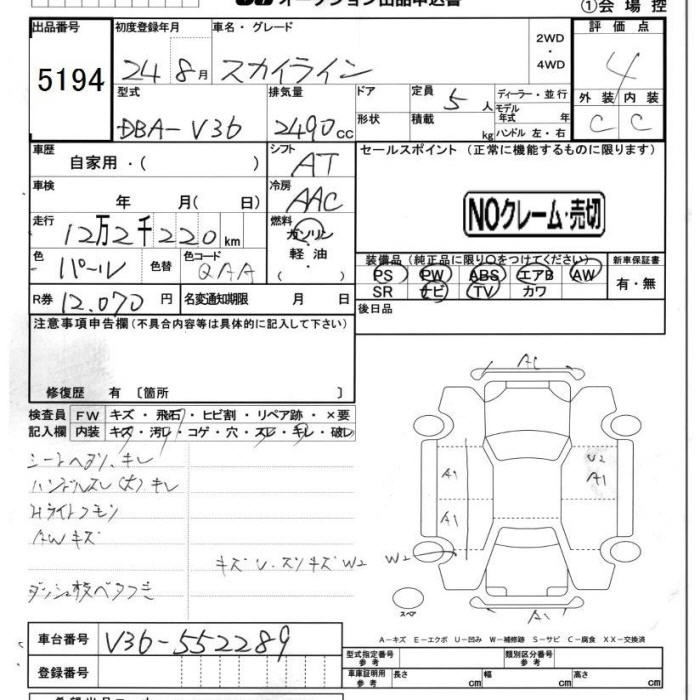 オークション出品申込書
①会場控
出品番号 初度登録年月 車名・グレード 評価点
5194 24 8月 スカイライン 2WD ・ 4WD 4
型式 排気量 ドア 定員 5人 ディーラー・並行 外装 内装
DBA-V36 2490cc 形状 積載 kg モデル年式 年 C C
ハンドル 左・右
車歴 自家用・( ) シフト AT セールスポイント (正常に機能するものに限ります)
車検 年 月( 日) 冷房 AAC
NOクレーム・売切
走行 12万2千220km 燃料 ガソリン・軽油・( )
色 パール 色替 色コード QAA
装備品(純正品に限り○をつけてください) 新車保証書
PS PW ABS エアB AW 有・無
SR ナビ TV カワ
R券 12,070円 名変通知期限 月 日
後日品
注意事項申告欄(不具合内容等は具体的に記入して下さい)
修復歴 有 〔箇所 〕
検査員 FW キズ・飛石・ヒビ割・リペア跡・×要
記入欄 内装 キズ・汚レ・コゲ・穴・スレ・キレ・破レ
シートヘタリ、キレ
ハンドルスレ(大)キレ
Hライトクモリ
AWキズ
キズ U・スリキズ W2
AC
A1
U2
A1
A1
W2
A1
スペア
A-キズ E-エクボ U-凹み W-補修跡 S-サビ C-腐食 XX-交換済
車台番号 V36-552289
型式指定番号 参考 類別区分番号 参考
登録番号
車庫証明用 参考 長さ cm 幅 cm 高さ cm